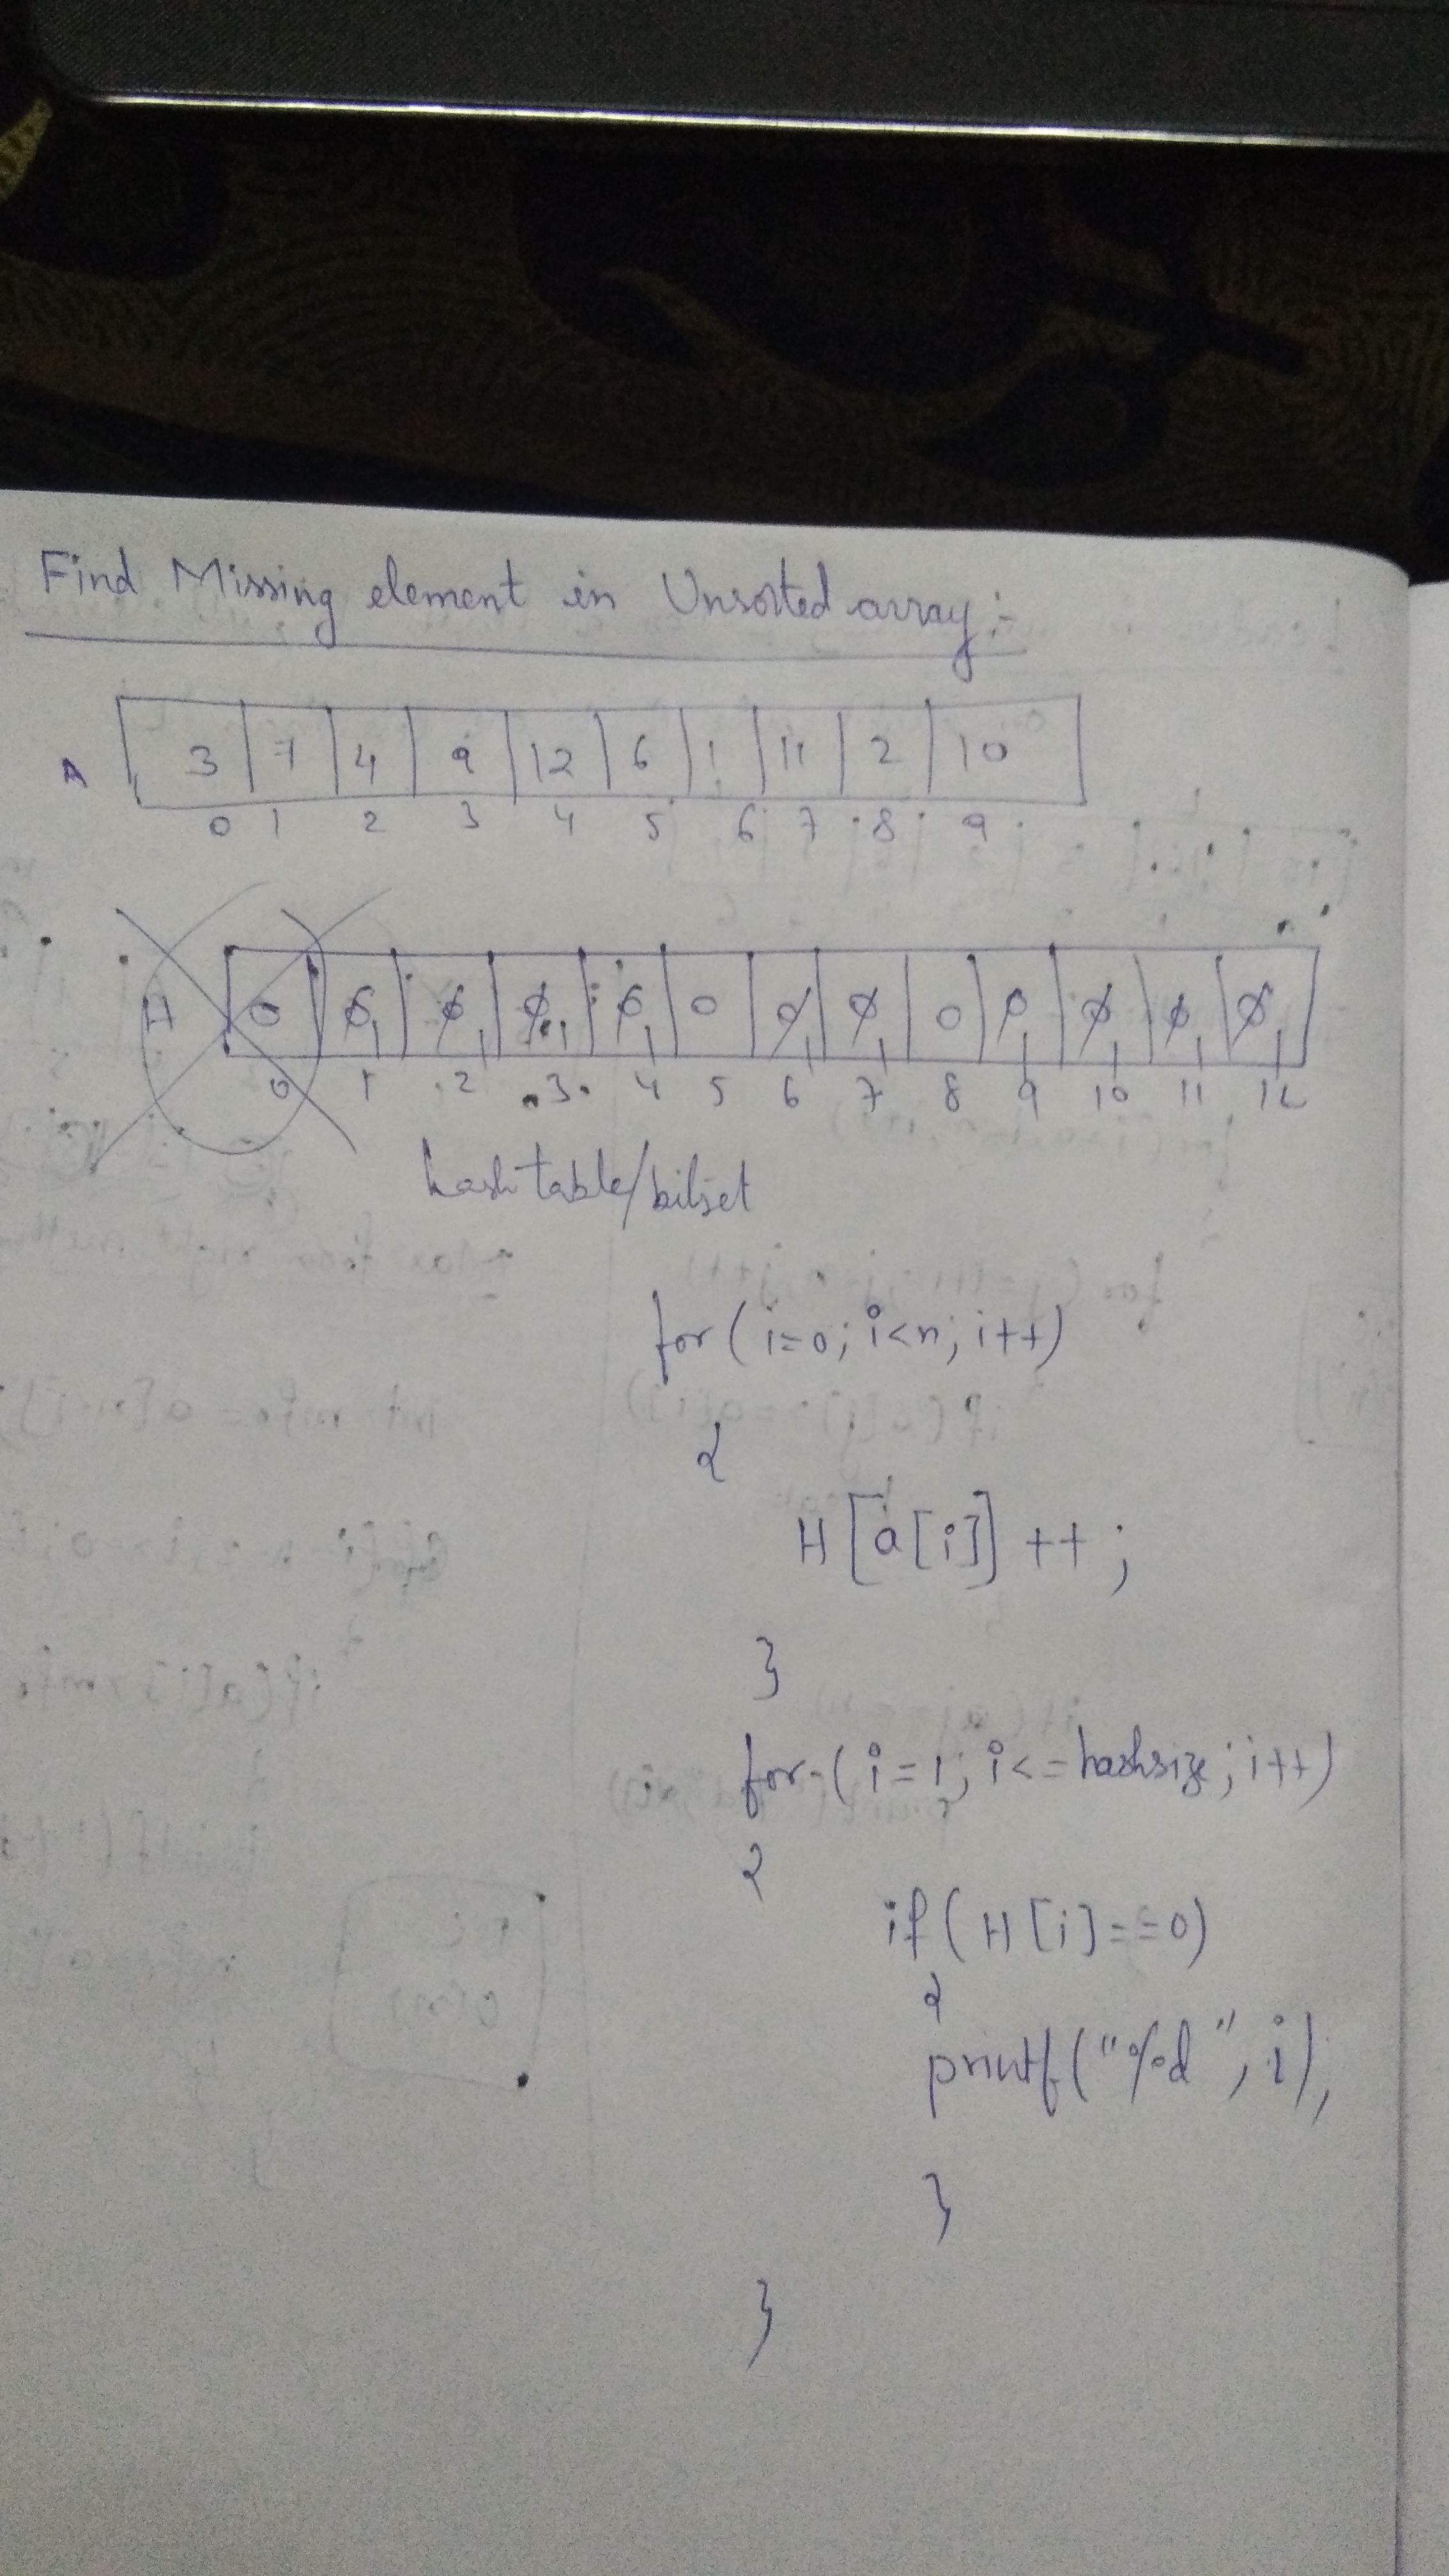 Find Missing element in Unsorted array:-
A 3 7 4 9 12 6 1 11 2 10
0 1 2 3 4 5 6 7 8 9
H 0 0 1 0 1 0 1 0 1 0 0 1 0 1 0 0 1 0 1 0 1 0 1
0 1 2 3 4 5 6 7 8 9 10 11 12
hash table/bitset
for (i=0; i<n; i++)
{
H[a[i]]++;
}
for (i=1; i<=hashsize; i++)
{
if (H[i]==0)
{
printf("%d", i);
}
}